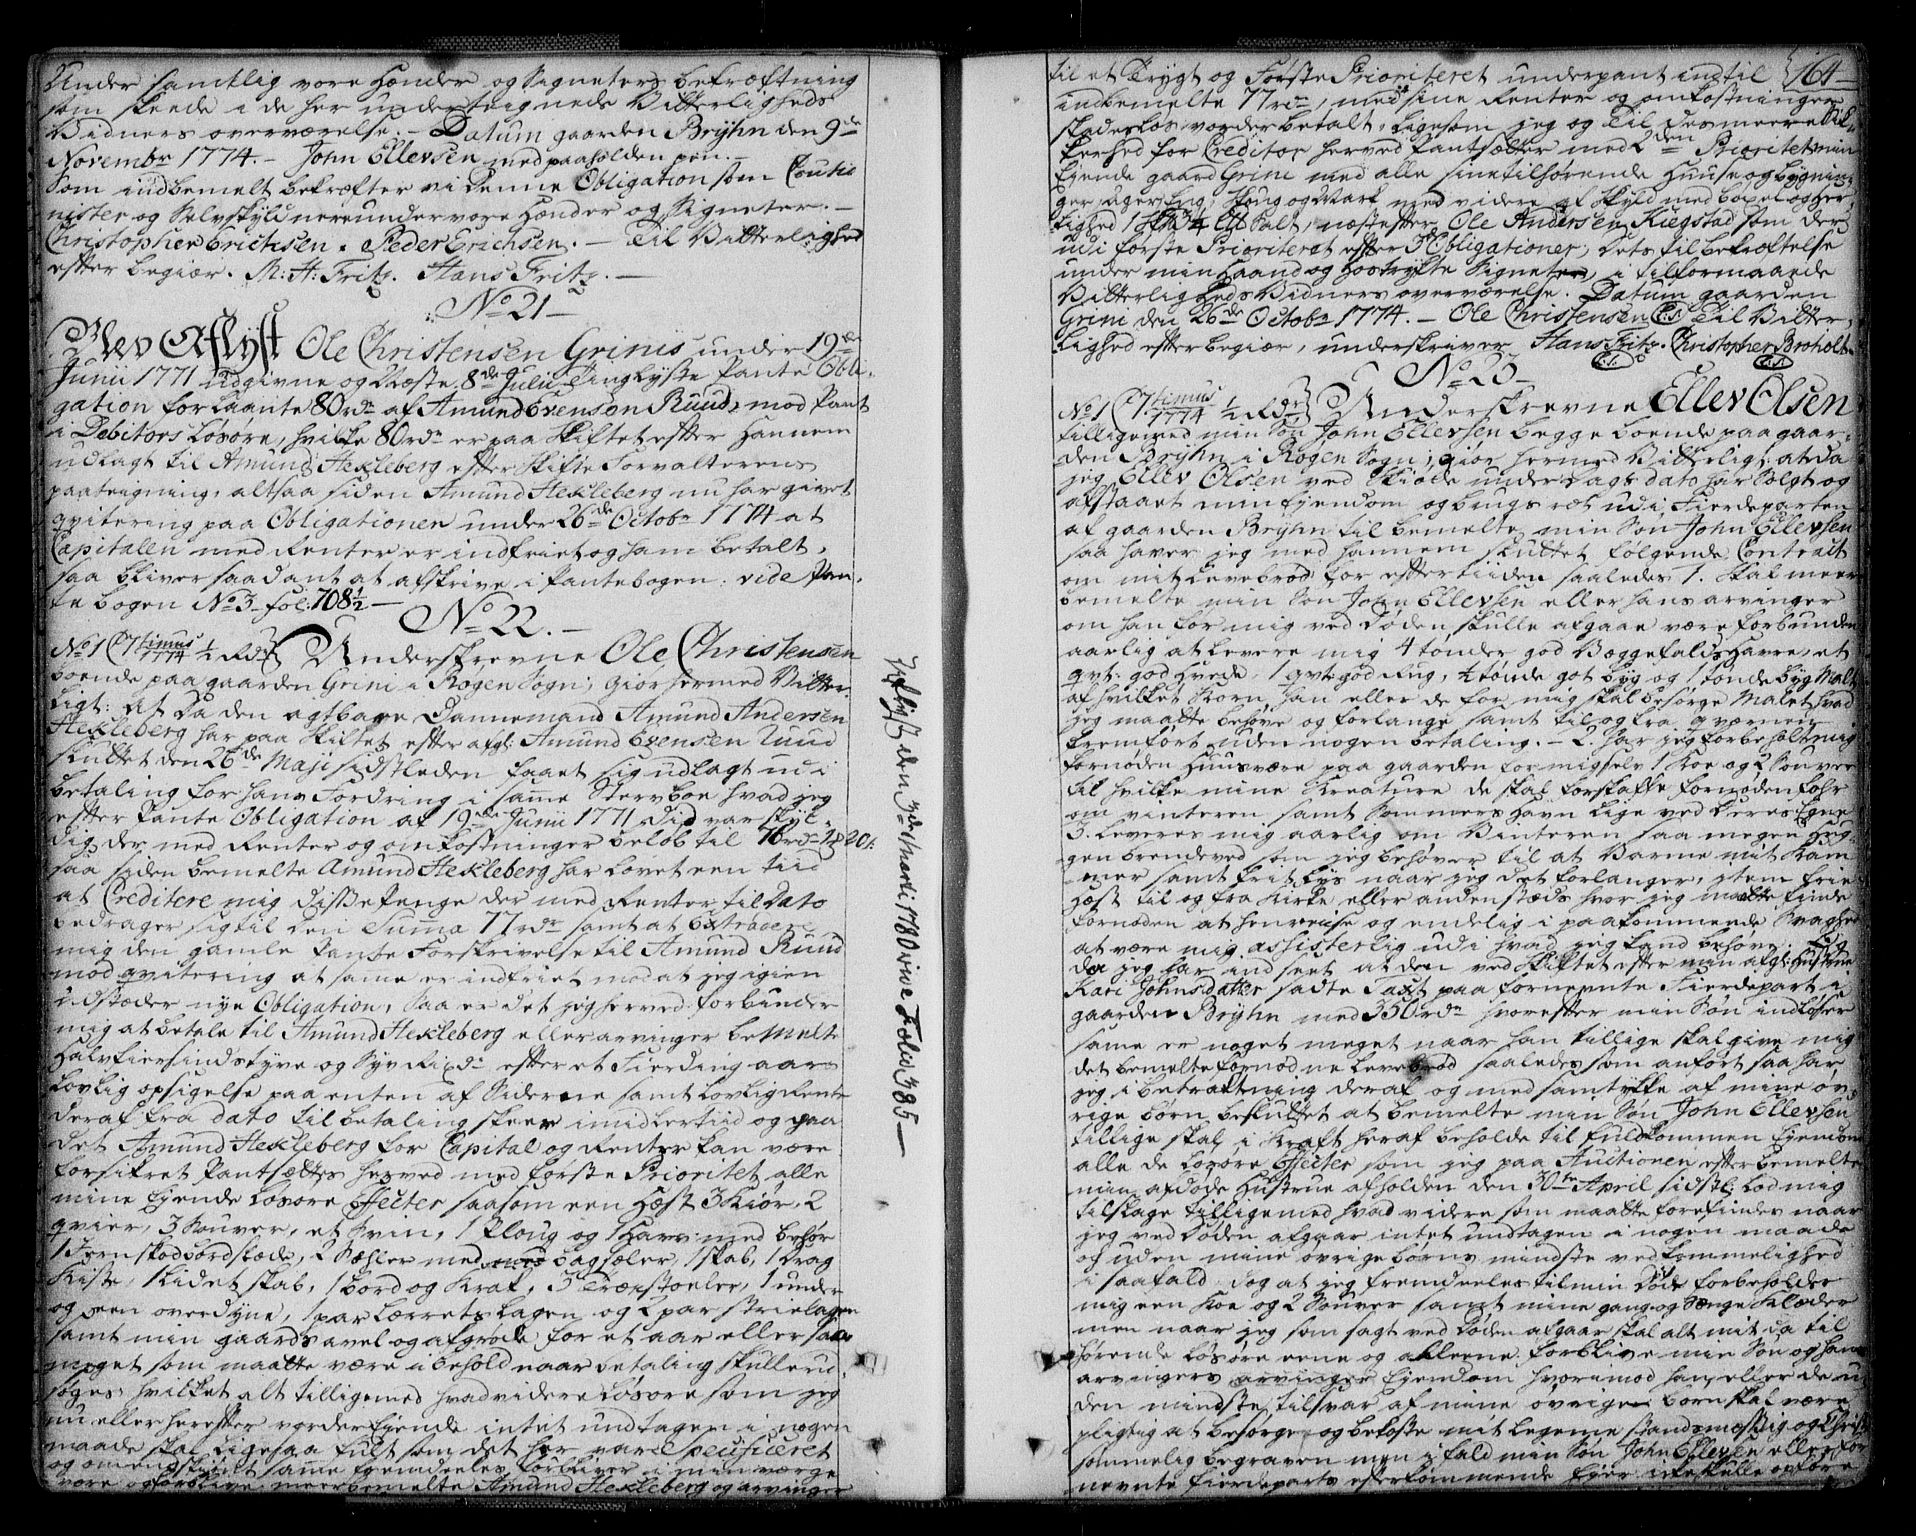 Under samtlig vore Hænder og Signeters bekræftning
som skeede i de her underteignede Vitterligheds
Vidners overværelse. – Datum gaarden Bryhn den 9de
Novembr 1774. – John Ellevsen med paaholden pen. –
Som indbemelt bekræfter vi denne Obligation som Coutio
nister og Selvskyldnere under vore Hænder og Signeter. –
Christopher Erichsen. Peder Erichsen. – Til Vitterlighed
efter begiær. M: H: Fritz. Hans Fritz. –
No 21 –
Blev Aflyst Ole Christensen Grinis under 19de
Junii 1771 udgivne og næste 8de Julii Tinglyste Pante Obli-
gation for laante 80 rdr af Amund Evensen Ruud, mod Pant
i Debitors Løsøre, hvilke 80 rdr er paa Skiftet efter Hannem
udlagt til Amund Hekleberg efter Skifte Forvalterens
paateigning, altsaa siden Amund Hekleberg nu har givet
qvitering paa Obligationen under 26de Octobr 1774 at
Capitalen med Renter er indfriet og ham betalt,
saa bliver saadant at afskrive i Pantebogen. vide Pan-
te bogen No 3 fol: 708 1/2 –
No 22. –
No 1 C7timus 1774 1/2 Rdr Underskrevne Ole Christensen
boende paa gaarden Grini i Rogen Sogn; giør hermed Vitter
ligt: at da den agtbare Dannemand Amund Andersen
Hekleberg har paa Skiftet efter afgl: Amund Evensen Ruud
sluttet den 26de Maji sidstleden faaet sig udlagt udi
betaling for hans Fordring i samme Stervboe hvad jeg
efter Pante Obligation af 19de Junii 1771 did var skyl-
dig, der med Renter og omkostninger beløb til 76 rdr 1 # 20 s:
saa siden bemelte Amund Hekleberg har lovet een tiid
at Creditere mig disse Penge der med Renter til Dato
bedrager sig til den Suma 77 rdr samt at Extradere
mig den gamle Pante Forskrivelse til Amund Ruud
med qvitering at samme er indfriet mod at jeg igien
udstæder nye Obligation, Saa er det jeg herved forbinder
mig at betale til Amund Hekleberg eller arvinger bemelte
Halvfierssindstyve og Syv Rixdr efter et Fierding aars
lovlig opsigelse paa enten af Siderne samt lovlig Rente
deraf fra dato til betaling skeer imidlertiid og paa
det Amund Hekleberg for Capital og Renter kan være
forsikret Pantsættes herved med første Prioritet alle
mine Ejende løsøre Effecter saasom een Hæst 3 Kiør, 2
qvier, 3 Souver, et Sviin, 1 Ploug og 1 Harv med behør
1 Jernskoed bordslæde, 2 Sæhler med bagsæler, 1 skab, 1 Drag
Kiste, 1 Lidet skab, 1 bord og Krak, 3 Træestoeler, 1 under
og een overdyne, 1 par Lærrets lagen og 2 par strielagen
samt min gaards avel og afgrøde for et aar eller saa
meget som maatte være i behold naar betaling skulle ud
søges: hvilket alt tilligemed hvad videre Løsøre som jeg
nu eller herefter vorder Ejende intet undtagen i nogen
maade skal ligesaa fult som det her var Specificeret
og omengskiønt samme fremdeeles forbliver i min værge
være og forblive meerbemelte Amund Hekleberg og arvinger
Aflyst den 3de Martii 1780 vide Folio 385 –
164 –
til et Trygt og Første Prioriteret underpant indtil
indbemelte 77 rdr, med sine Renter og omkostninger
skadesløs vorder betalt, ligesom jeg og til desmeere Sik-
kerhed for Creditor herved Pantsætter med 2den Prioritet min
Ejende gaard Grini med alle sine tilhørende Huuse og bygnin-
ger, ager, Eng, Skoug og Mark med videre af Skyld med boxel og her-
lighed Salt, næst efter Ole Andersen Kiegstad som der
udi første Prioriteret efter Obligationer, Dets til bekræftelse
under min Haand og hostrykte Signeter, i tilformaaede
Vitterligheds Vidners overværelse. Datum gaarden
Grini den 26de Octobr 1774. – Ole Christensen (L.S.) Til Vitter-
lighed efter begiær, underskriver Hans Fritz. Christopher Broholt.
(L.S.) (L.S.)
No 23 –
No 1 C7timus 1774 1/2 Rdr Underskrevne Ellev Olsen
tilligemed min Søn John Ellevsen begge boende paa gaar-
den Bryhn i Rogen Sogn, giør hermed Vitterligt, at da
jeg Ellev Olsen ved Skiøde under dags dato har Solgt og
afstaaet min Ejendom og brugs ret udi Fierdeparten
af gaarden Bryhn til bemelte min Søn John Ellevsen
saa haver jeg med hannem sluttet følgende Contract
om mit Levebrød for eftertiiden saaledes 1. Skal meer
bemelte min Søn John Ellevsen eller hans arvinger
om han for mig ved Døden skulle afgaae være forbunden
aarlig at levere mig 4 tønder god Væggefalds Havre, et
qvt: god Hvede, 1 qvt: god Rug, 1/2 tønde got byg og 1 tønde byg Malt
af hvilket Korn han eller de for mig skal besørge Malet hvad
jeg maatte behøve og forlange samt til og fra qværnen
fremført uden nogen betaling. – 2. har jeg forbeholt mig
fornøden Huusvære paa gaarden for mig selv 1 Koe og 2 Souver
til hvilke mine Kreature de skal forskaffe fornøden Fohr
om vinteren samt Sommers Havn lige ved deres Egne
3. Leveres mig aarlig om Vinteren saa megen Hug-
gen brendeved som jeg behøver til at Varme mit Kam
mer samt frit Lys naar jeg det forlanger, item frie
Hæst til og fra Kirke eller andenstæds hvor jeg maatte finde
fornøden at henreise og endelig i paakommende Svaghed
at være mig assisterlig udi hvad jeg kand behøve. Og
da jeg har indseet at den ved Skiftet efter min afgl: Hustrue
Kari Johnsdatter sadte Taxt paa fornevnte Fierdepart i
gaarden Bryhn med 350 rdr hvorefter min Søn indløser
same er noget meget naar han tillige skal give mig
det bemelte fornødne Levebrød saaledes som anført saa har
jeg i betragtning deraf og med samtykke af mine øv-
rige børn besluttet at bemelte min Søn John Ellevsen
tillige skal i Kraft heraf beholde til fuldkommen Ejendom
alle de løsøre Effecter som jeg paa Auctionen efter bemelte
min afdøde Hustrue afholden den 30te April sidstl: lod mig
tilslage tilligemed hvad videre som maatte forefindes naar
jeg ved Døden afgaar intet undtagen i nogen maade
og uden mine øvrige børns mindste vedkommelighed
i saafald. Dog at jeg fremdeeles til min Død forbeholder
mig een Koe og 2 Souver samt mine gang- og Sænge Klæder
men naar jeg som sagt ved Døden afgaar skal alt mit da til
hørende løsøre eene og alleene forblive min Søn og hans
arvingers arvinger Ejendom hvorimod han eller de u
den mindste tilsvar af mine øvrige børn skal være
pligtig at besørge og bekoste mit Legeme standsmæssig og Christ
sommelig begraven men i fald min Søn John Ellevsen eller for
nevnte fierdeparts efterkommende Ejer icke skulle opføre